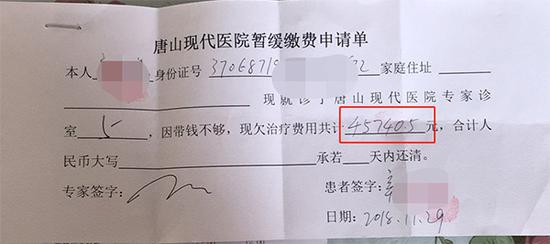 唐山现代医院暂缓缴费申请单
本人 身份证号 37068719 2 家庭住址
现就诊于唐山现代医院专家诊
室 5 ,因带钱不够,现欠治疗费用共计 45740.5 元,合计人
民币大写 承若 天内还清。
专家签字: 患者签字:
日期: 2018.11.29